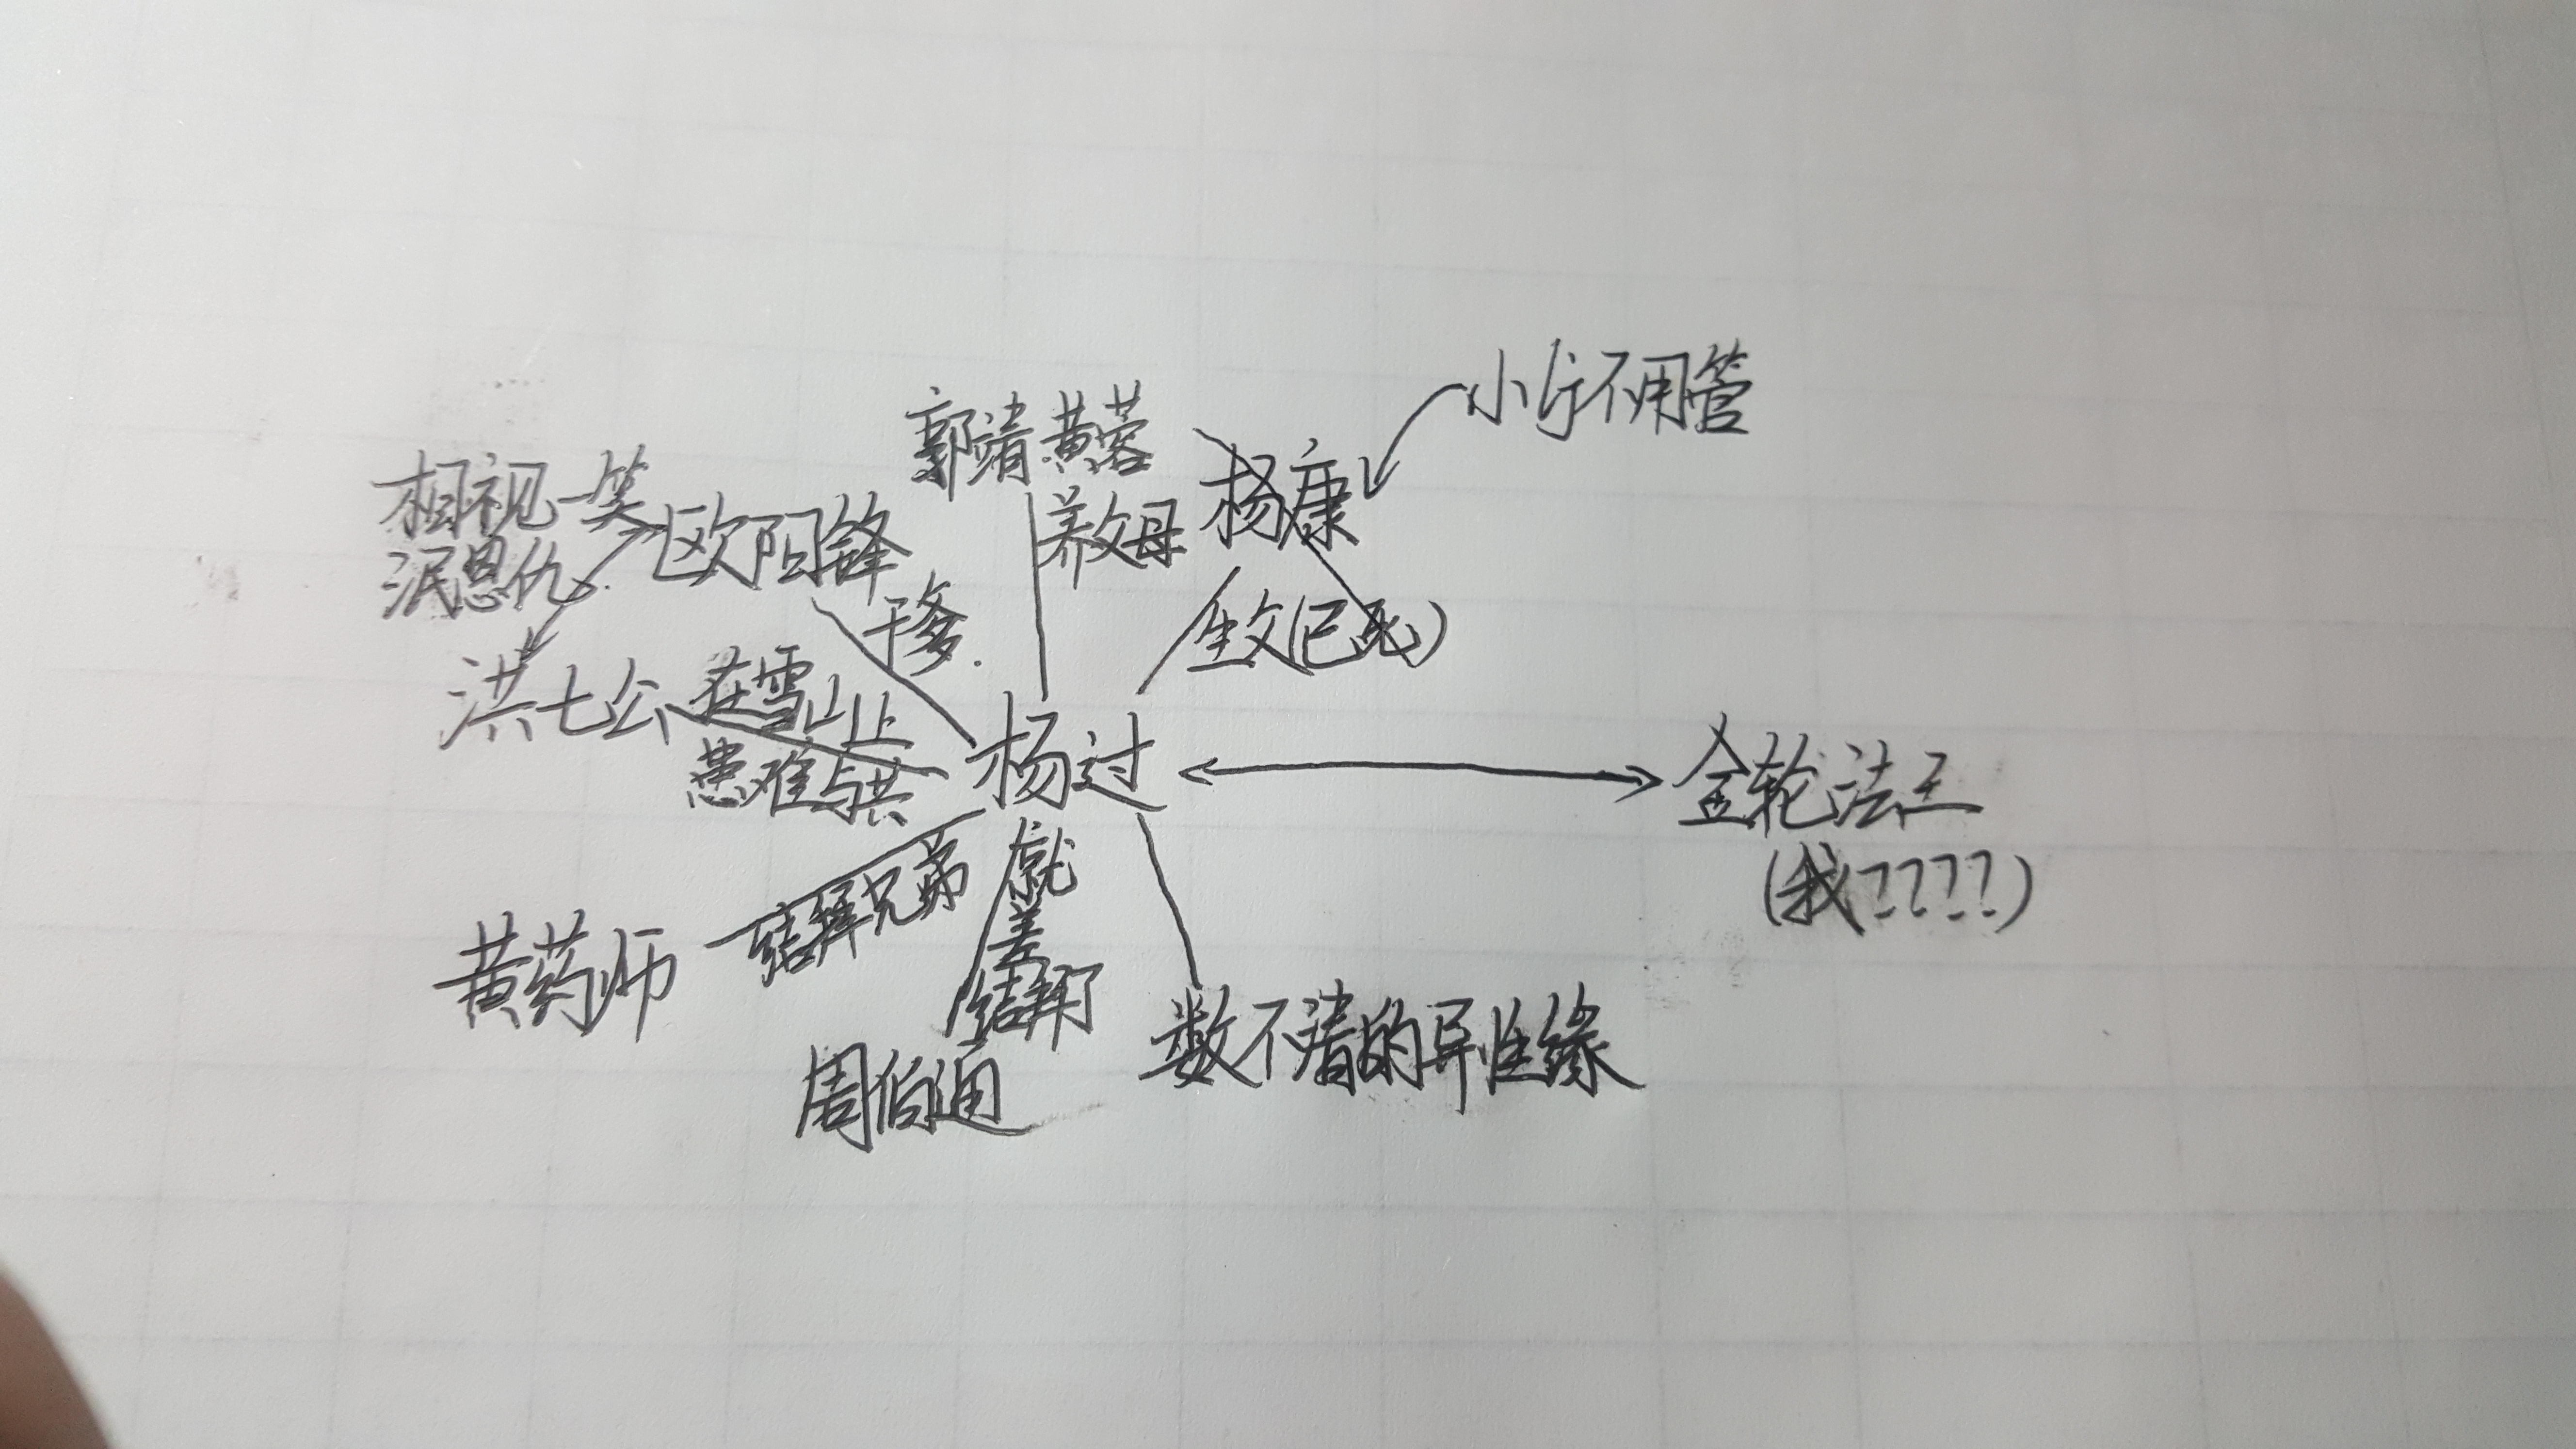 小疒不用管
郭靖 黄蓉
杨康
养父母
相视一笑
泯恩仇
欧阳锋
干爹.
生父(已死)
洪七公
在雪山上
患难与共
杨过
金轮法王
(我????)
结拜兄弟
就差结拜了
黄药师
周伯通
数不清的异性缘